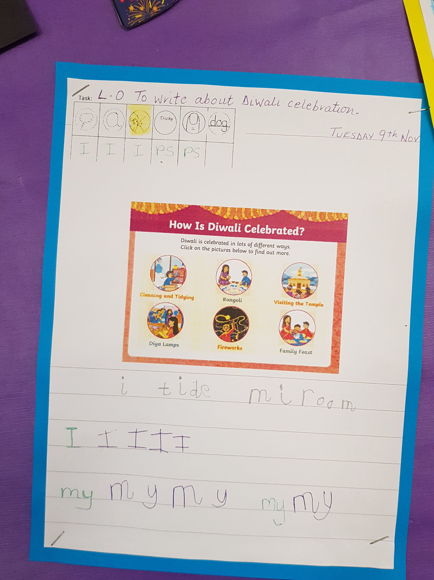 Task: L.O To write about Diwali celebration.
Tricky dog
I I I PS PS
Tuesday 9th Nov
How Is Diwali Celebrated?
Diwali is celebrated in lots of different ways.
Click on the pictures below to find out more.
Cleaning and Tidying Rangoli Visiting the Temple
Diya Lamps Fireworks Family Feast
i tide mi room
I I I I I
my my my my my